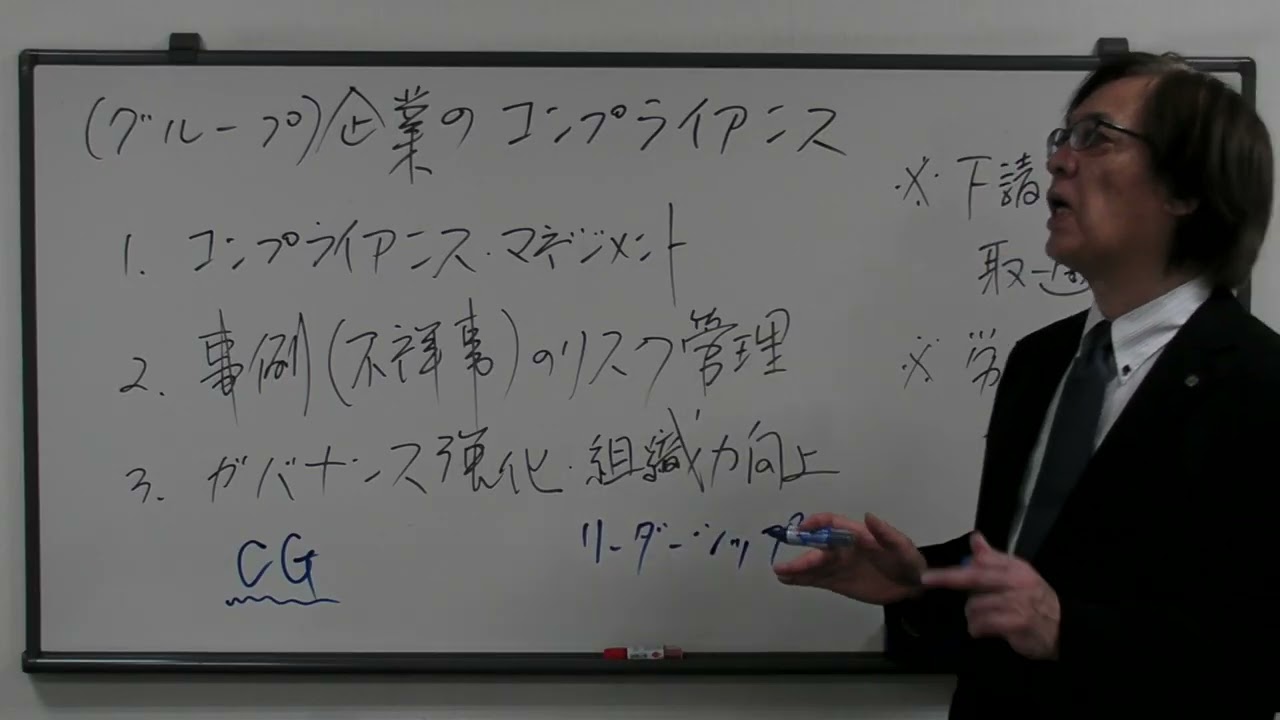 (グループ)企業のコンプライアンス
1. コンプライアンス・マネジメント
2. 事例(不祥事)のリスク管理
3. ガバナンス強化・組織力向上
CG
リーダーシップ
※下請
取
※労